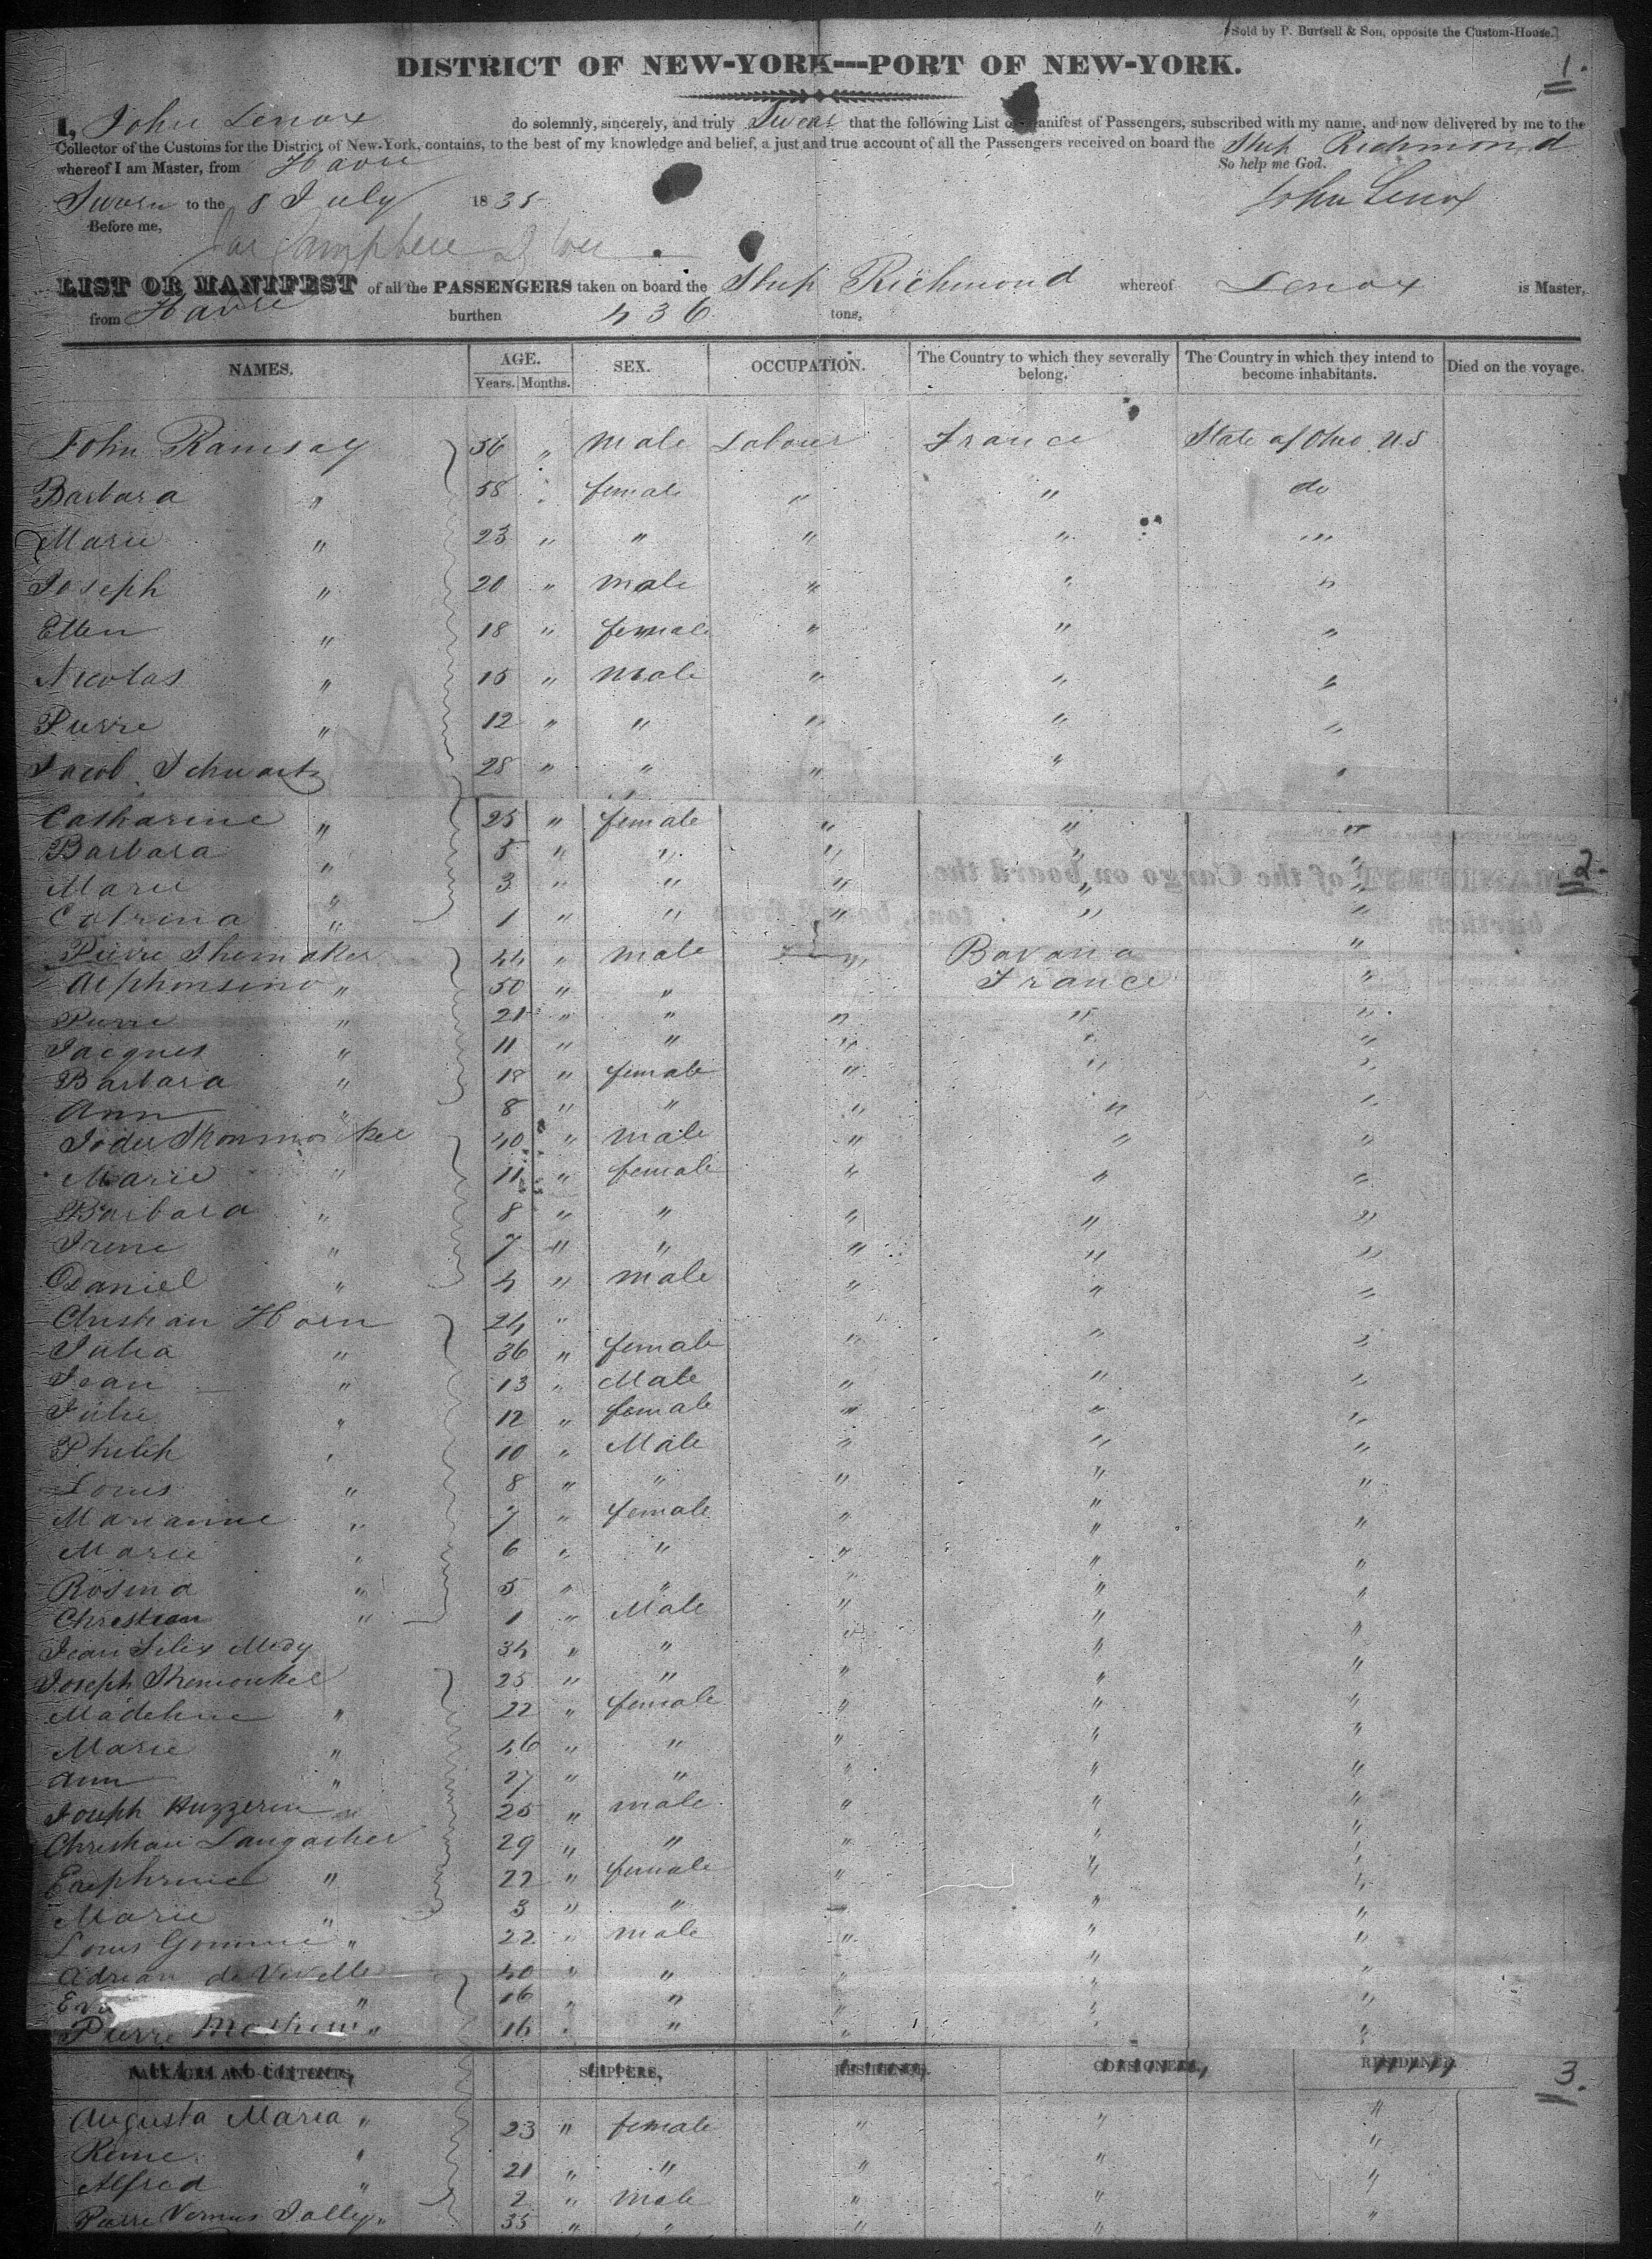 [Sold by P. Burtsell & Son, opposite the Custom-House.]
DISTRICT OF NEW-YORK---PORT OF NEW-YORK.
1.
I, John Lenox do solemnly, sincerely, and truly Swear that the following List or Manifest of Passengers, subscribed with my name, and now delivered by me to the
Collector of the Customs for the District of New-York, contains, to the best of my knowledge and belief, a just and true account of all the Passengers received on board the Ship Richmond
whereof I am Master, from Havre So help me God.
Sworn to the 8 July 1835 John Lenox
Before me,
LIST OR MANIFEST of all the PASSENGERS taken on board the Ship Richmond whereof Lenox is Master,
from Havre burthen 436 tons,
NAMES. AGE. SEX. OCCUPATION. The Country to which they severally belong. The Country in which they intend to become inhabitants. Died on the voyage.
Years. Months.
John Ramsay 56 " male Labour France State of Ohio US
Barbara " 58 " female " " do
Marie " 23 " " " " "
Joseph " 20 " male " " "
Ellen " 18 " female " " "
Nicolas " 15 " Male " " "
Pierre " 12 " " " " "
Jacob Schwartz 28 " " " " "
Catharine " 25 " female " " "
Barbara " 5 " " " " "
Marie " 3 " " " " " 2.
Catrina " 1 " " " " "
MANIFEST of the Cargo on board the
burthen tons, bound from
Pierre Shemaker 44 " male " Bavaria "
Alphonsino " 50 " " France "
Pierre " 21 " " " " "
Jacques " 11 " " " " "
Barbara " 18 " female " " "
Ann " 8 " " " " "
40 " male " " "
Marie " 11 " female " " "
Barbara " 8 " " " " "
Irene " 7 " " " " "
Daniel " 4 " male " " "
Christian Horn 24 " "
Julia " 36 " female " " "
Jean " 13 " Male " " "
Julie " 12 " female " " "
Philip " 10 " Male " " "
Louis " 8 " " " " "
Marianne " 7 " female " " "
Marie " 6 " " " " "
Rosina " 5 " " " " "
Christian " 1 " Male " " "
Jean Felix Medy 34 " " " " "
Joseph 25 " " " " "
Madeline " 22 " female " " "
Marie " 46 " " " " "
Ann " 27 " " " " "
Joseph Huzzerin 25 " male " " "
Christian Langacher 29 " " " " "
" 22 " female " " "
Marie " 3 " " " " "
Louis " 22 " male " " "
Adrian de Vivelle 40 " " " " "
" 16 " " " " "
Pierre " 16 " " " " "
PACKAGES AND CONTENTS, SHIPPERS, RESIDENCE. CONSIGNEES, RESIDENCE. 3.
Augusta Maria " 23 " female " " "
" 21 " " " " "
Alfred " 2 " Male " " "
Pierre Jolly " 35 " " " " "